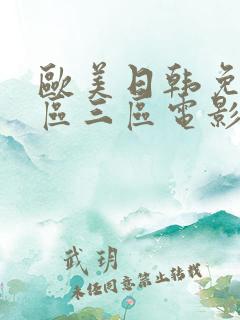 歐美日韩免
區三區電影
武玥
未经同意禁止转载